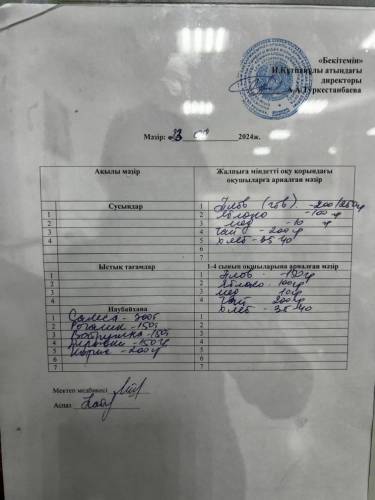 «Бекітемін»
И.Құтпанұлы атындағы
директоры
А.А.Туркестанбаева
Мәзір: 2024ж.
Ақылы мәзір
Жалпыға міндетті оқу қорындағы
оқушыларға арналған мәзір
Сусындар
1 Плов (гов). -200/250гр
1
2 Яблоко -100 гр
2
3 мёд -10 гр
3
4 чай - 200гр
4
5 Хлеб - 35 40
6
7
Ыстық тағамдар
1-4 сынып оқушыларына арналған мәзір
1
1 Плов -150гр
2
2 Яблоко 100гр
3
3 мёд 10гр
4
4 Чай 200гр
Наубайхана
Хлеб - 35 40
1 Самса - 200г
1
2 Рогалик - 150г
2
3 Ватрушка - 150г
3
4 Пирожки - 150гр
4
5 - 200гр
5
6
6
7
7
Мектеп медбикесі
Аспаз